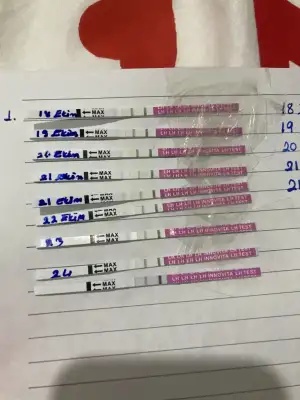 1. 18 Ekim MAX LH LH LH LH INNOVITA LH TEST 18
19 Ekim MAX LH LH LH LH INNOVITA LH TEST 19
MAX LH LH LH LH INNOVITA LH TEST 20
21 Ekim MAX LH LH LH LH INNOVITA LH TEST
21 Ekim MAX LH LH LH LH INNOVITA LH TEST
22 Ekim MAX LH LH LH LH INNOVITA LH TEST
23 MAX LH LH LH LH INNOVITA LH TEST
24 MAX LH LH LH LH INNOVITA LH TEST
MAX LH LH LH LH INNOVITA LH TEST